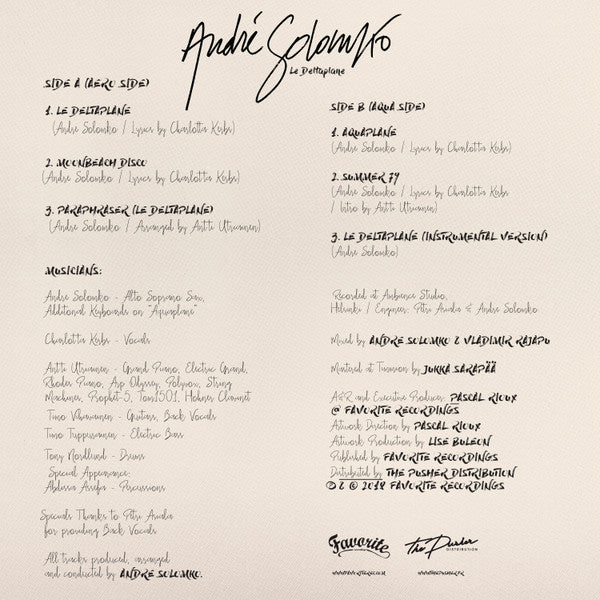 André Solomko
Le Deltaplane
SIDE A (AERO SIDE)
1. LE DELTAPLANE
(André Solomko / Lyrics by Charlotta Kerbs)
2. MOONBEACH DISCO
(André Solomko / Lyrics by Charlotta Kerbs)
3. PARAPHRASER (LE DELTAPLANE)
(André Solomko / Arranged by Antti Utriainen)
MUSICIANS:
André Solomko - Alto Soprano Sax,
Additional Keyboards on "Aquaplane"
Charlotta Kerbs - Vocals
Antti Utriainen - Grand Piano, Electric Grand,
Rhodes Piano, Arp Odyssey, Polivox, String
Machines, Prophet-5, Tom1501, Hohner Clavinet
Timo Guitars, Back Vocals
Timo Tuppurainen - Electric Bass
Tony Nordlund - Drums
Special Appearance:
Abdissa Assefa - Percussions
Specials Thanks to Petri
for providing Back Vocals
All tracks produced, arranged
and conducted by ANDRÉ SOLOMKO.
SIDE B (AQUA SIDE)
1. AQUAPLANE
(André Solomko / Lyrics by Charlotta Kerbs)
2. SUMMER 79
(André Solomko / Lyrics by Charlotta Kerbs
/ Intro by Antti Utriainen)
3. LE DELTAPLANE (INSTRUMENTAL VERSION)
(André Solomko)
Recorded at Ambience Studio,
Helsinki / Engineers: Petri & André Solomko
Mixed by ANDRÉ SOLOMKO & VLADIMIR RAJAPU
Mastered at Timmion by JUKKA SARAPÄÄ
A&R and Executive Producer: PASCAL RIOUX
@ FAVORITE RECORDINGS
Artwork Direction by PASCAL RIOUX
Artwork Production by LISE BULEON
Published by FAVORITE RECORDINGS
Distributed by THE PUSHER DISTRIBUTION
℗ & © 2018 FAVORITE RECORDINGS
Favorite
The Pusher
DISTRIBUTION